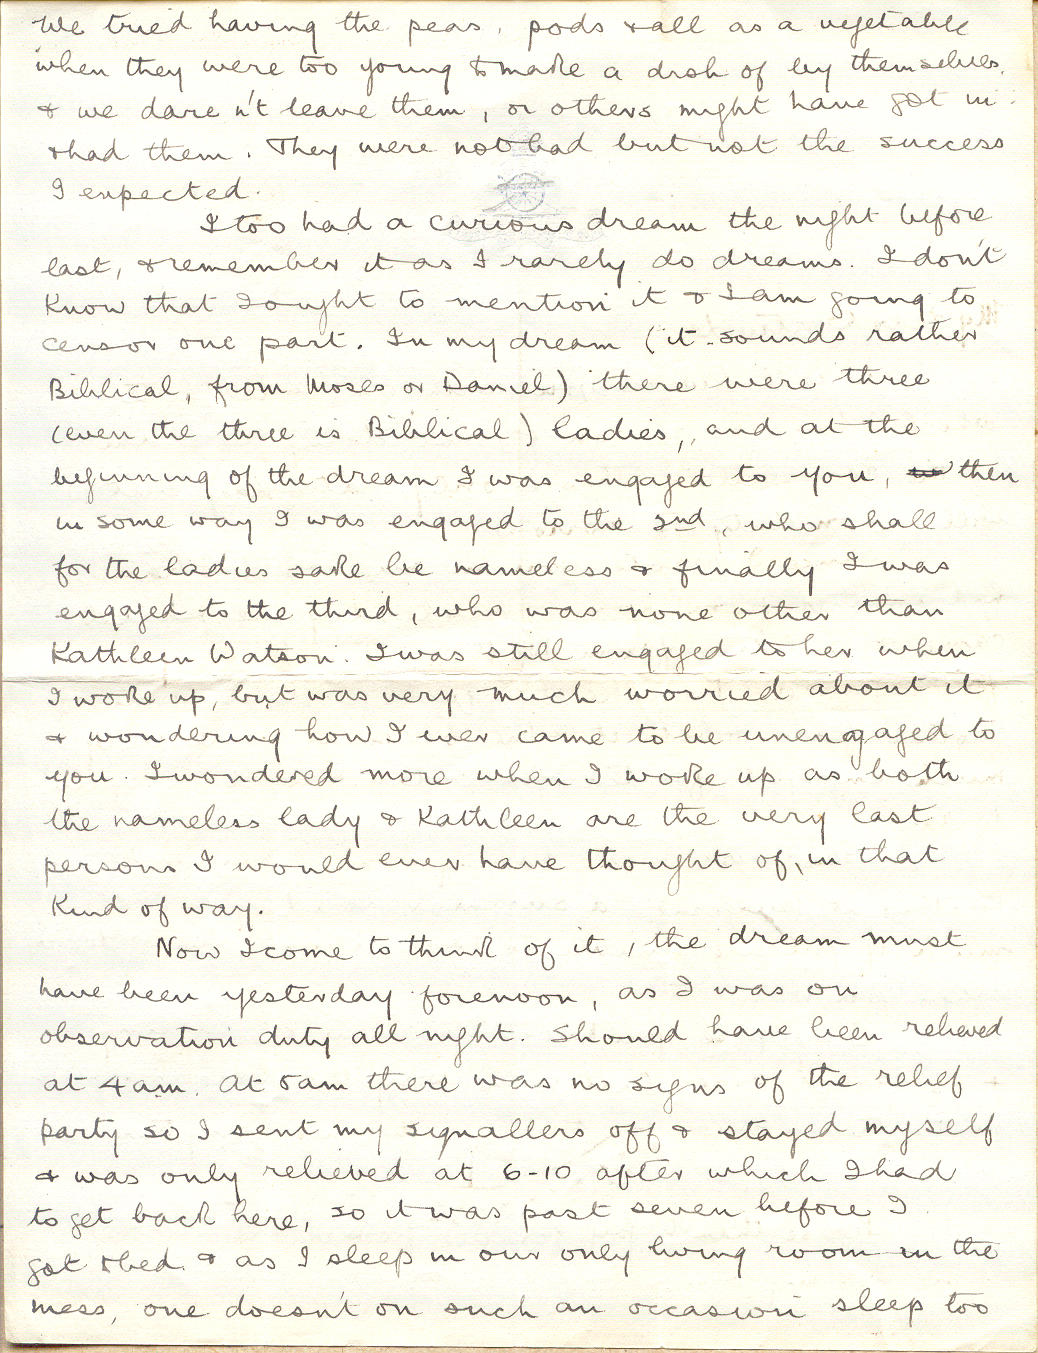 We tried having the peas, pods & all as a vegetable
when they were too young to make a dish of by themselves,
& we dare n't leave them, or others might have got in
& had them. They were not bad but not the success
I expected.
I too had a curious dream the night before
last, & remember it as I rarely do dreams. I don't
know that I ought to mention it & I am going to
censor one part. In my dream (it sounds rather
Biblical, from Moses or Daniel) there were three
(even the three is Biblical) ladies, and at the
beginning of the dream I was engaged to you, then
in some way I was engaged to the 2nd, who shall
for the ladies sake be nameless & finally I was
engaged to the third, who was none other than
Kathleen Watson. I was still engaged to her when
I woke up, but was very much worried about it
& wondering how I ever came to be unengaged to
you. I wondered more when I woke up as both
the nameless lady & Kathleen are the very last
persons I would ever have thought of, in that
kind of way.
Now I come to think of it, the dream must
have been yesterday forenoon, as I was on
observation duty all night. Should have been relieved
at 4 am. At 5 am there was no signs of the relief
party so I sent my signallers off & stayed myself
& was only relieved at 6-10 after which I had
to get back here, so it was past seven before I
got to bed & as I sleep in our only living room in the
mess, one doesn't on such an occasion sleep too